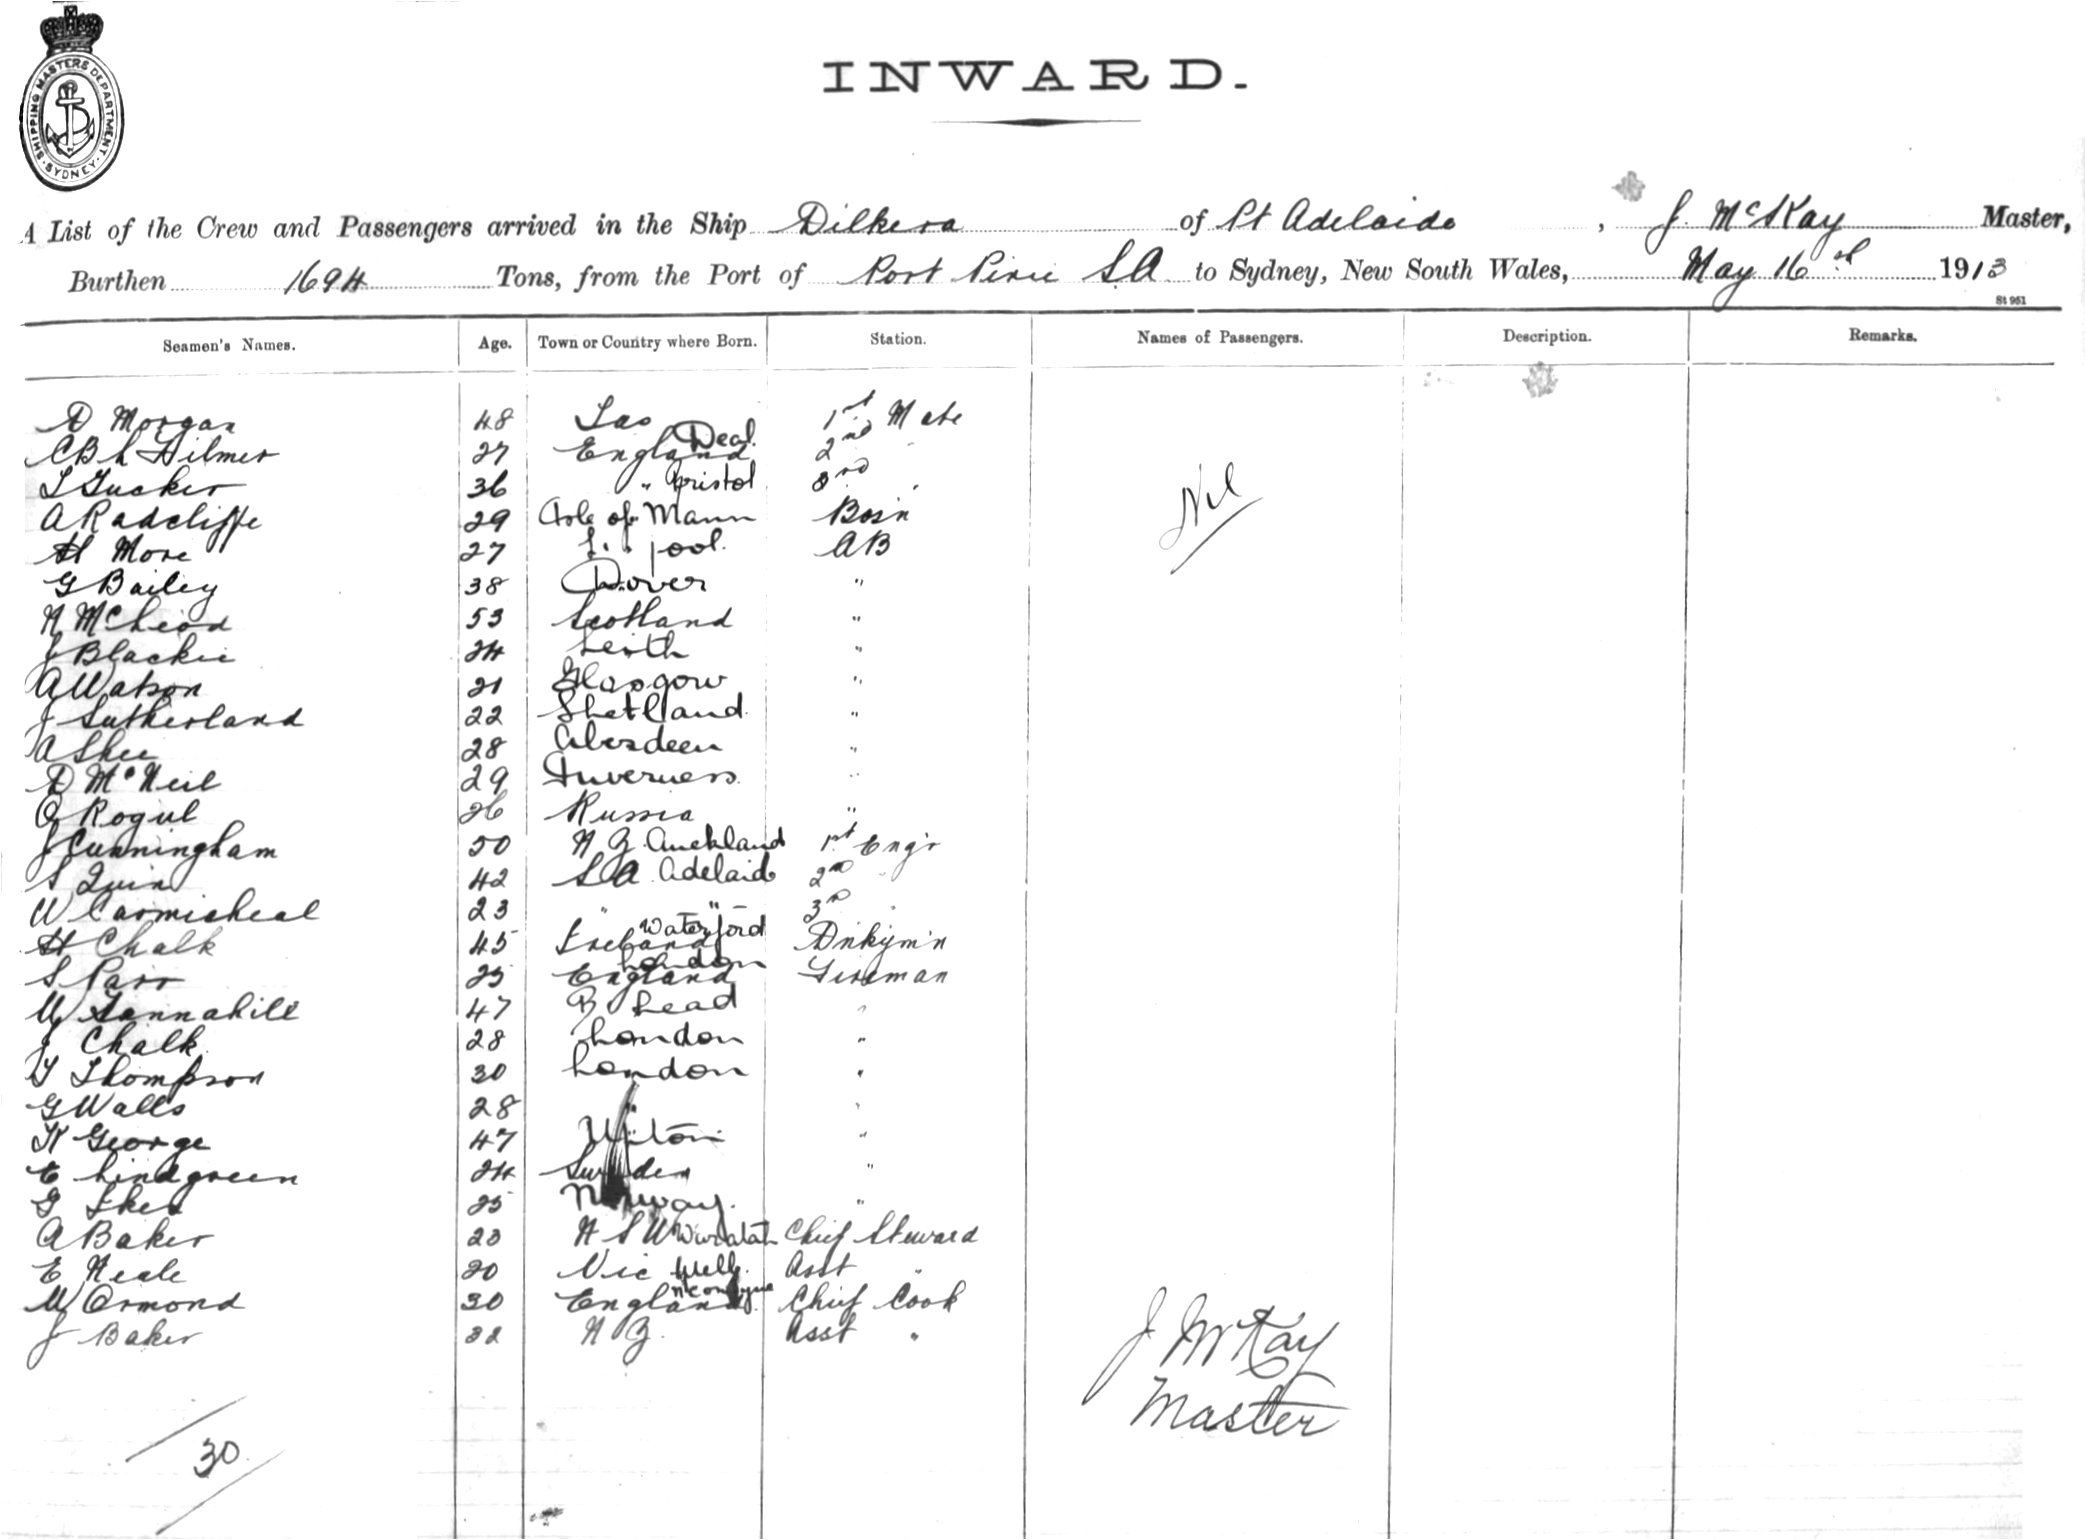 SHIPPING MASTERS DEPARTMENT · SYDNEY ·
INWARD.
A List of the Crew and Passengers arrived in the Ship Dilkera of Pt Adelaide, J. McKay Master,
Burthen 1694 Tons, from the Port of Port Pirie S.A to Sydney, New South Wales, May 16th 1913
St 951
Seamen's Names. Age. Town or Country where Born. Station. Names of Passengers. Description. Remarks.
D Morgan 48 1st Mate
CBL Hilmer 27 England Deal 2nd "
T Tucker 36 " Bristol 3rd "
A Radcliffe 29 Isle of Mann Bosn
Nil
H More 27 L. pool. AB
G Bailey 38 Dover "
N McLeod 53 Scotland "
J Blackie 24 Leith "
A Watson 21 Glasgow "
J Sutherland 22 Shetland "
A Shee 28 Aberdeen "
D McNeil 29 Inverness "
O Rogul 26 Russia "
J Cunningham 50 N Z Auckland 1st Engr
S Quin 42 S A Adelaide 2nd "
W Carmicheal 23 " " 3rd "
H Chalk 45 Ireland Waterford Dnkym'n
S Parr 25 England London Fireman
W Tannahill 47 B Head "
J Chalk 28 London "
T Thompson 30 London "
G Walls 28 " "
K George 47 "
E Lindgreen 24 Sweden "
G 25 Norway. "
A Baker 23 N S W Chief Steward
E Neale 20 Vic Melb. Asst "
W Ormond 30 England Chief Cook
J Baker 22 N Z. Asst "
J McKay
Master
30